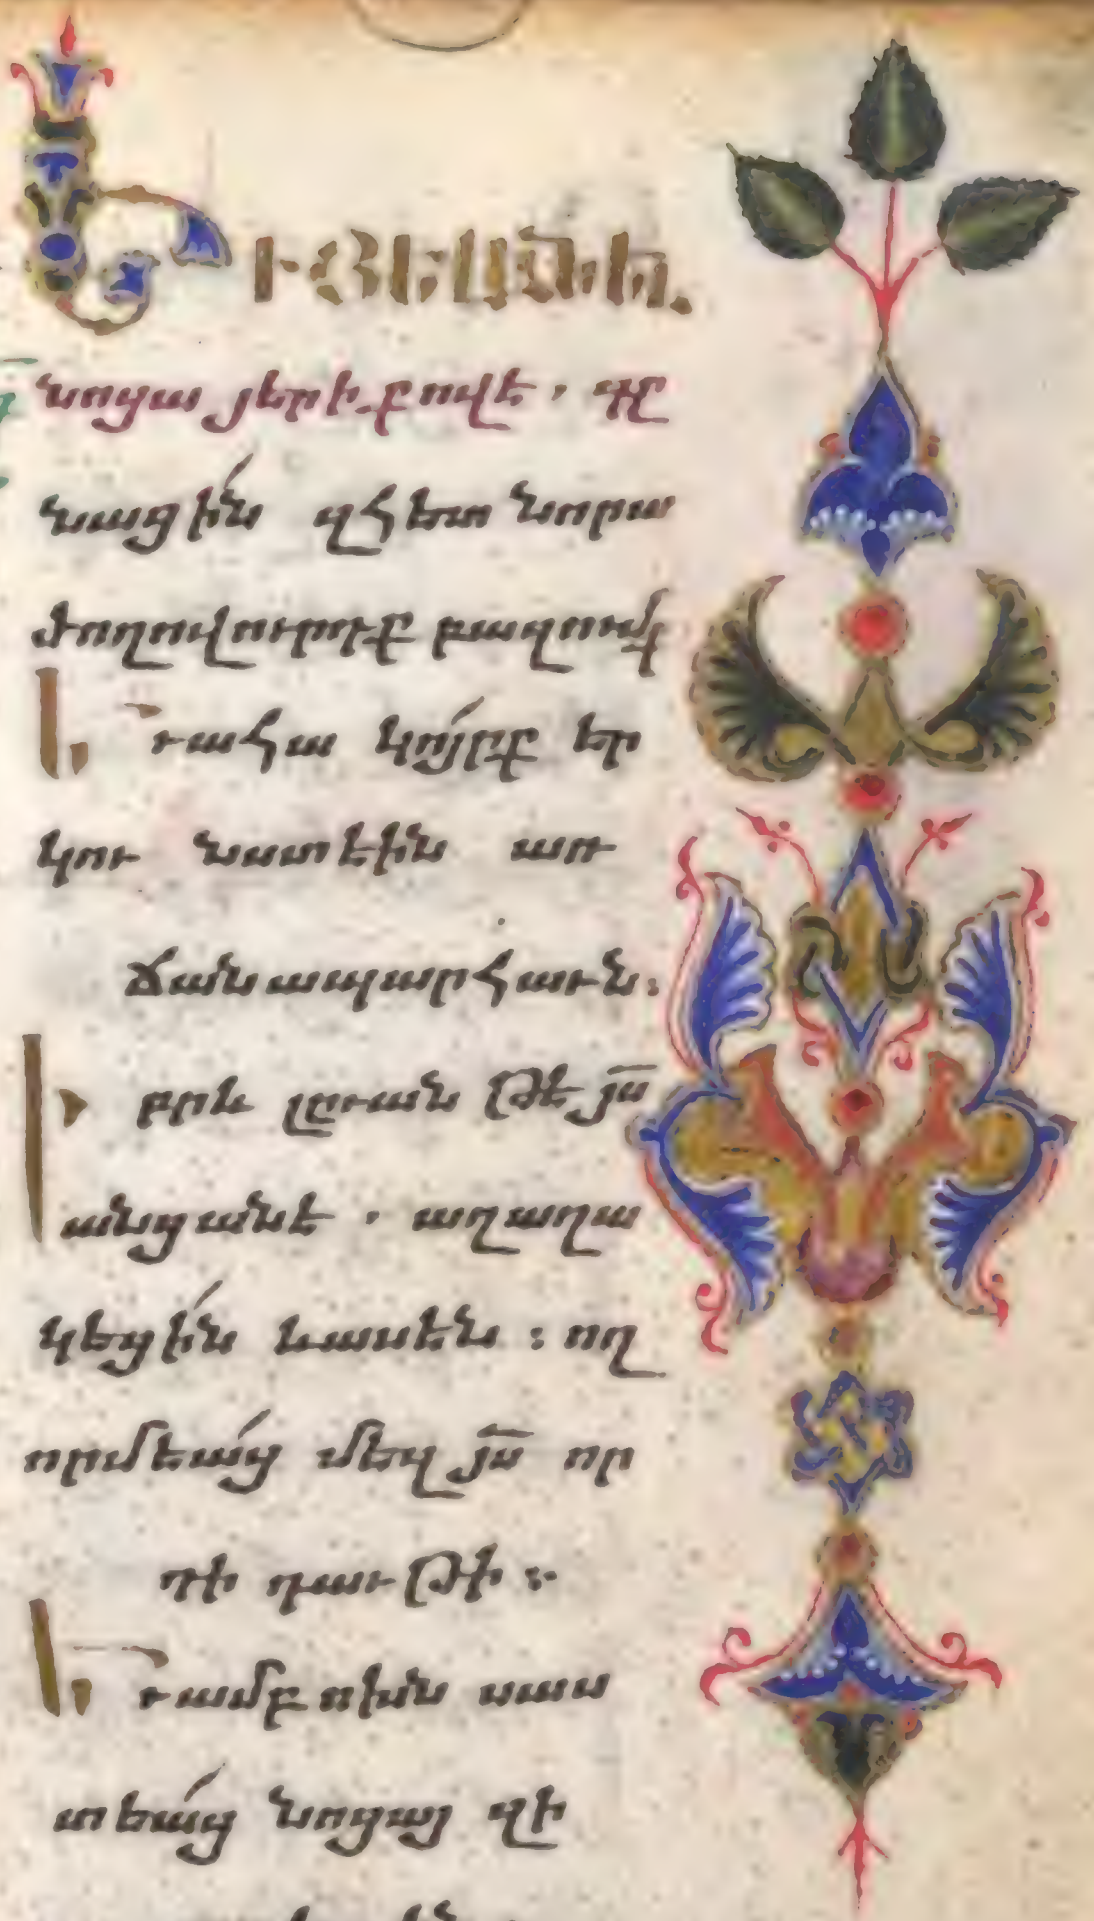 ԵՒ ՅԵԼԱՆԵԼ
նոցա յերիքովէ . գը
նացին զհետ նորա
ժողովուրդք բազումք
Եւ ահա կոյրք եր
կու նստէին առ
ճանապարհաւն :
իբրև լըւան թէ յս̄
անցանէ . աղաղա
կեցին և ասեն : ող
որմեա՛ց մեզ յս̄ որ
դի դաւթի :
Եւ ամբոխին սաս
տեա՛ց նոցայ զի